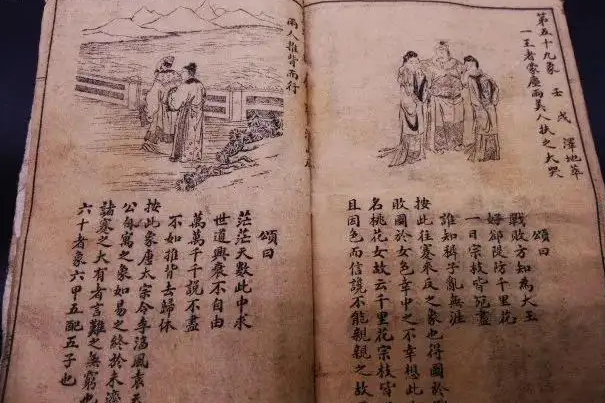 第五十九象 壬戌 澤地萃
一王者蒙塵兩美人扶之大哭
頌曰
戰敗方知為大王
好隄防千里花
一日宗枝皆砍盡
誰知稗子亂無涯
按此往蹇來反之象也得圖於
敗國於女色幸中之不幸想此
名桃花女故云千里花宗枝皆
且因色而信讒不能親親之故
兩人推背而行
頌曰
茫茫天數此中求
世道興衰不自由
萬萬千千說不盡
不如推背去歸休
按此象唐太宗令李淳風袁天
公自寓之象如易之終於未濟
諸蹇之大有者言難之無窮也
六十者象六甲五配五子也